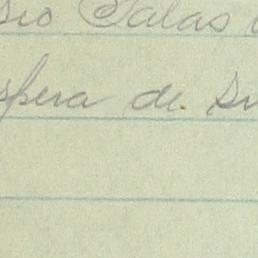 sio Salas
spera de Su